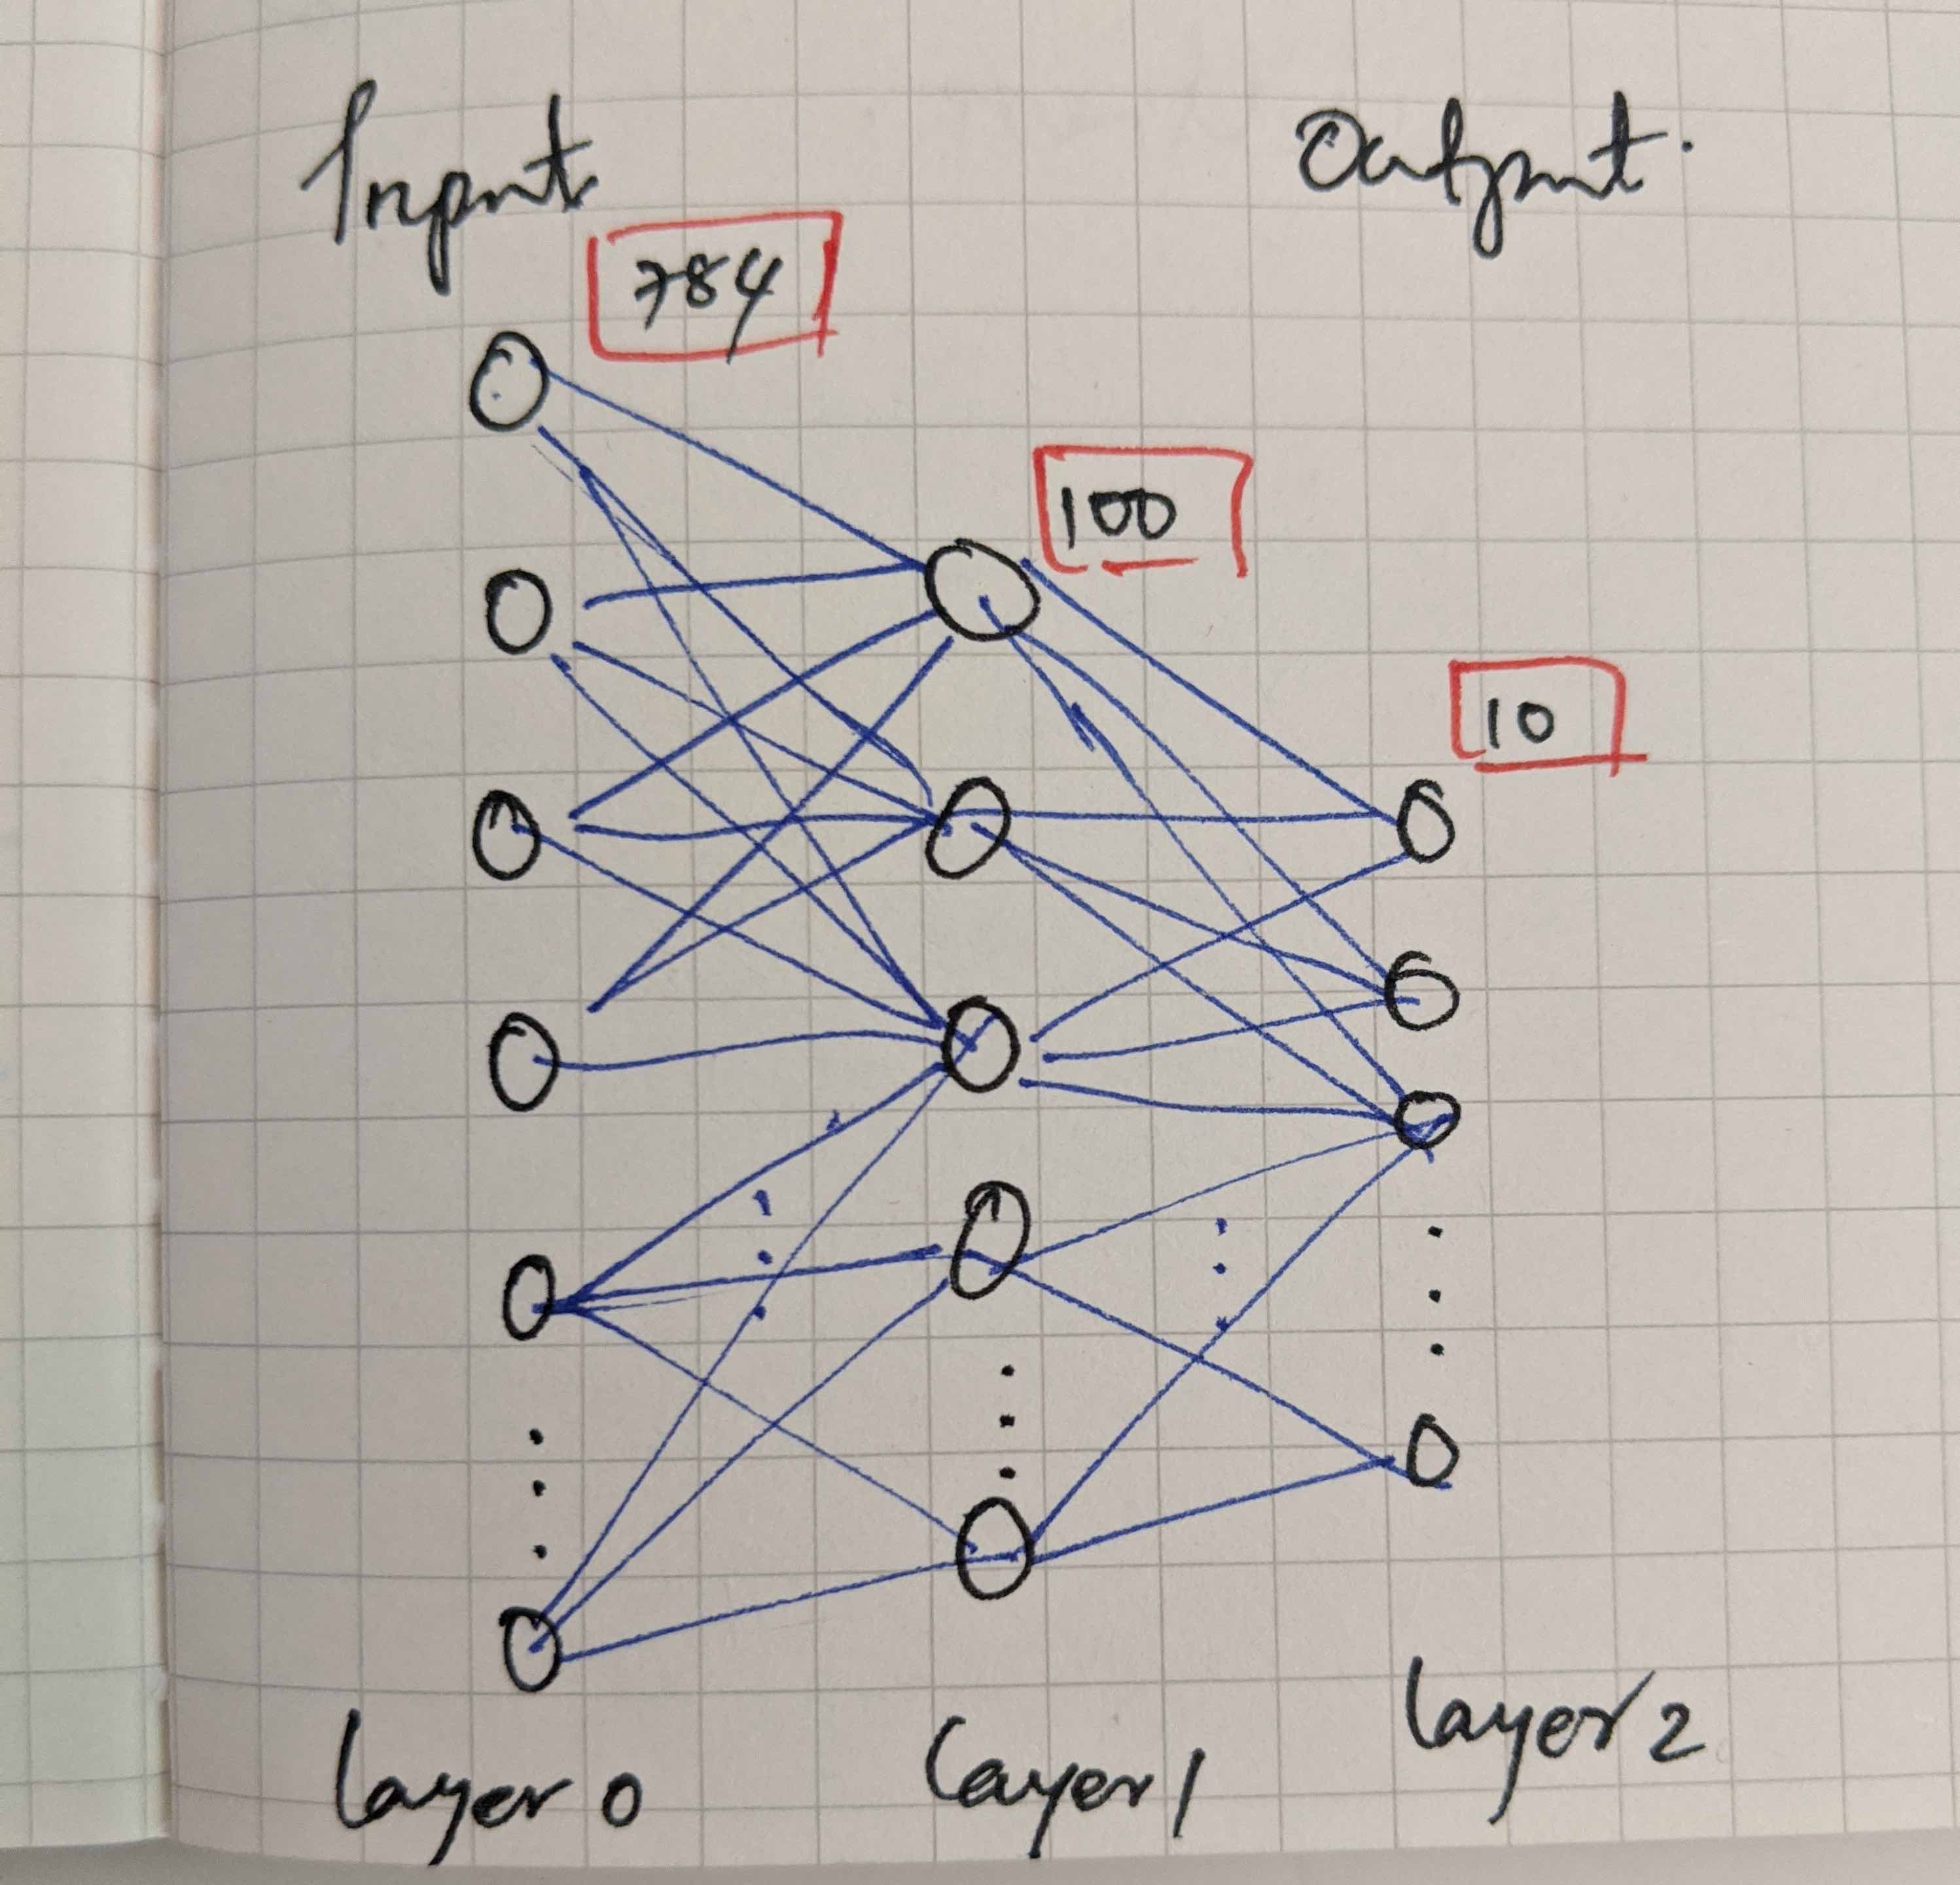 Input
Output.
784
100
10
layer 0
layer 1
layer 2